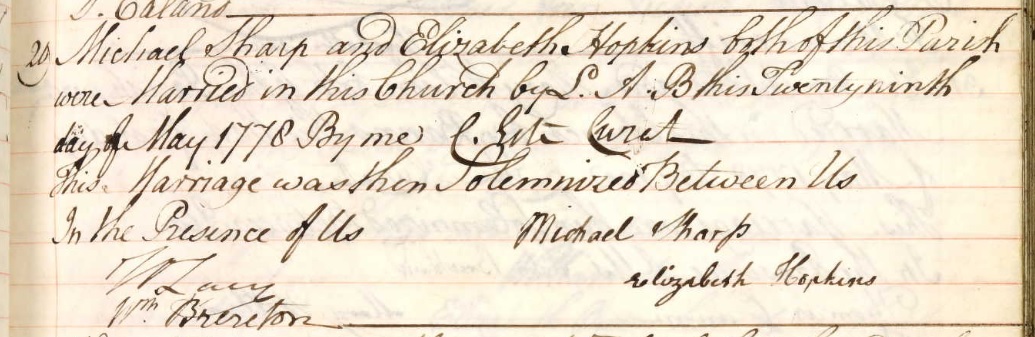 20 Michael Sharp and Elizabeth Hopkins both of this Parish
were Married in this Church by L. A. B this Twenty ninth
day of May 1778 By me C. Curat
This Marriage was then Solemnized Between Us
In the Presence of Us Michael Sharp
Elizabeth Hopkins
W Lacy
Wm Brereton